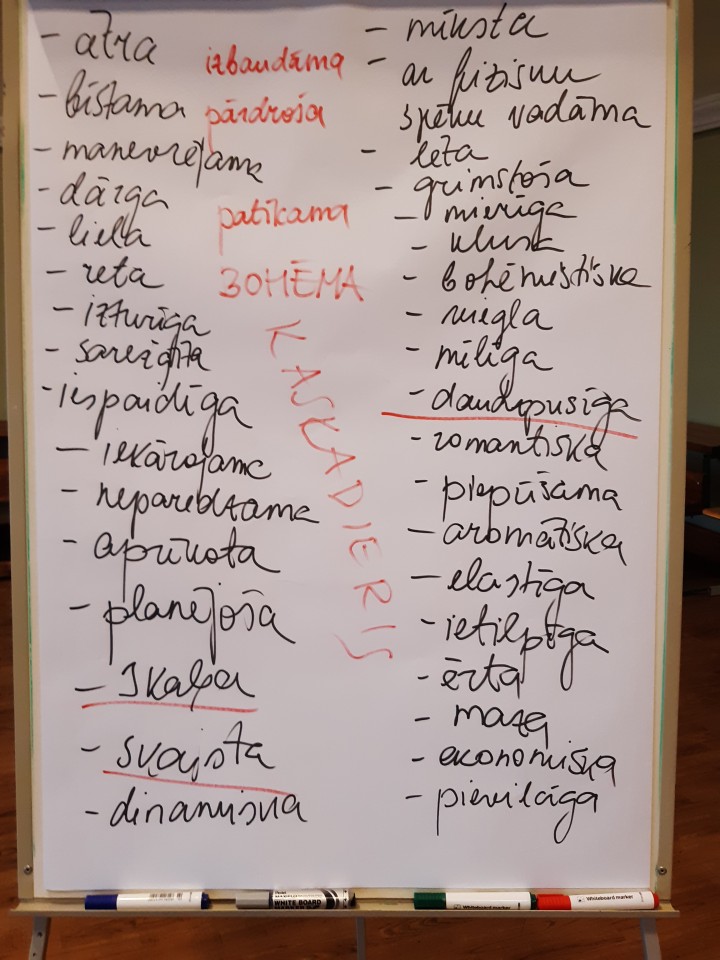 - ātra
- bīstama
- manevrējama
- dārga
- liela
- reta
- izturīga
- sarežģīta
- iespaidīga
- iekārojama
- neparedzama
- aprīkota
- planējoša
- skaļa
- skaista
- dinamiska
izbaudāma
pārdroša
patīkama
BOHĒMA
KASKADIERIS
- mīksta
- ar fizisku
spēku vadāma
- lēta
- grimstoša
- mierīga
- klusa
- bohēmistiska
- viegla
- mīlīga
- daudzpusīga
- romantiska
- piepūšama
- aromātiska
- elastīga
- ietilpīga
- ērta
- maza
- ekonomiska
- pievilcīga
WHITE BOARD
Whiteboard marker
Whiteboard marker